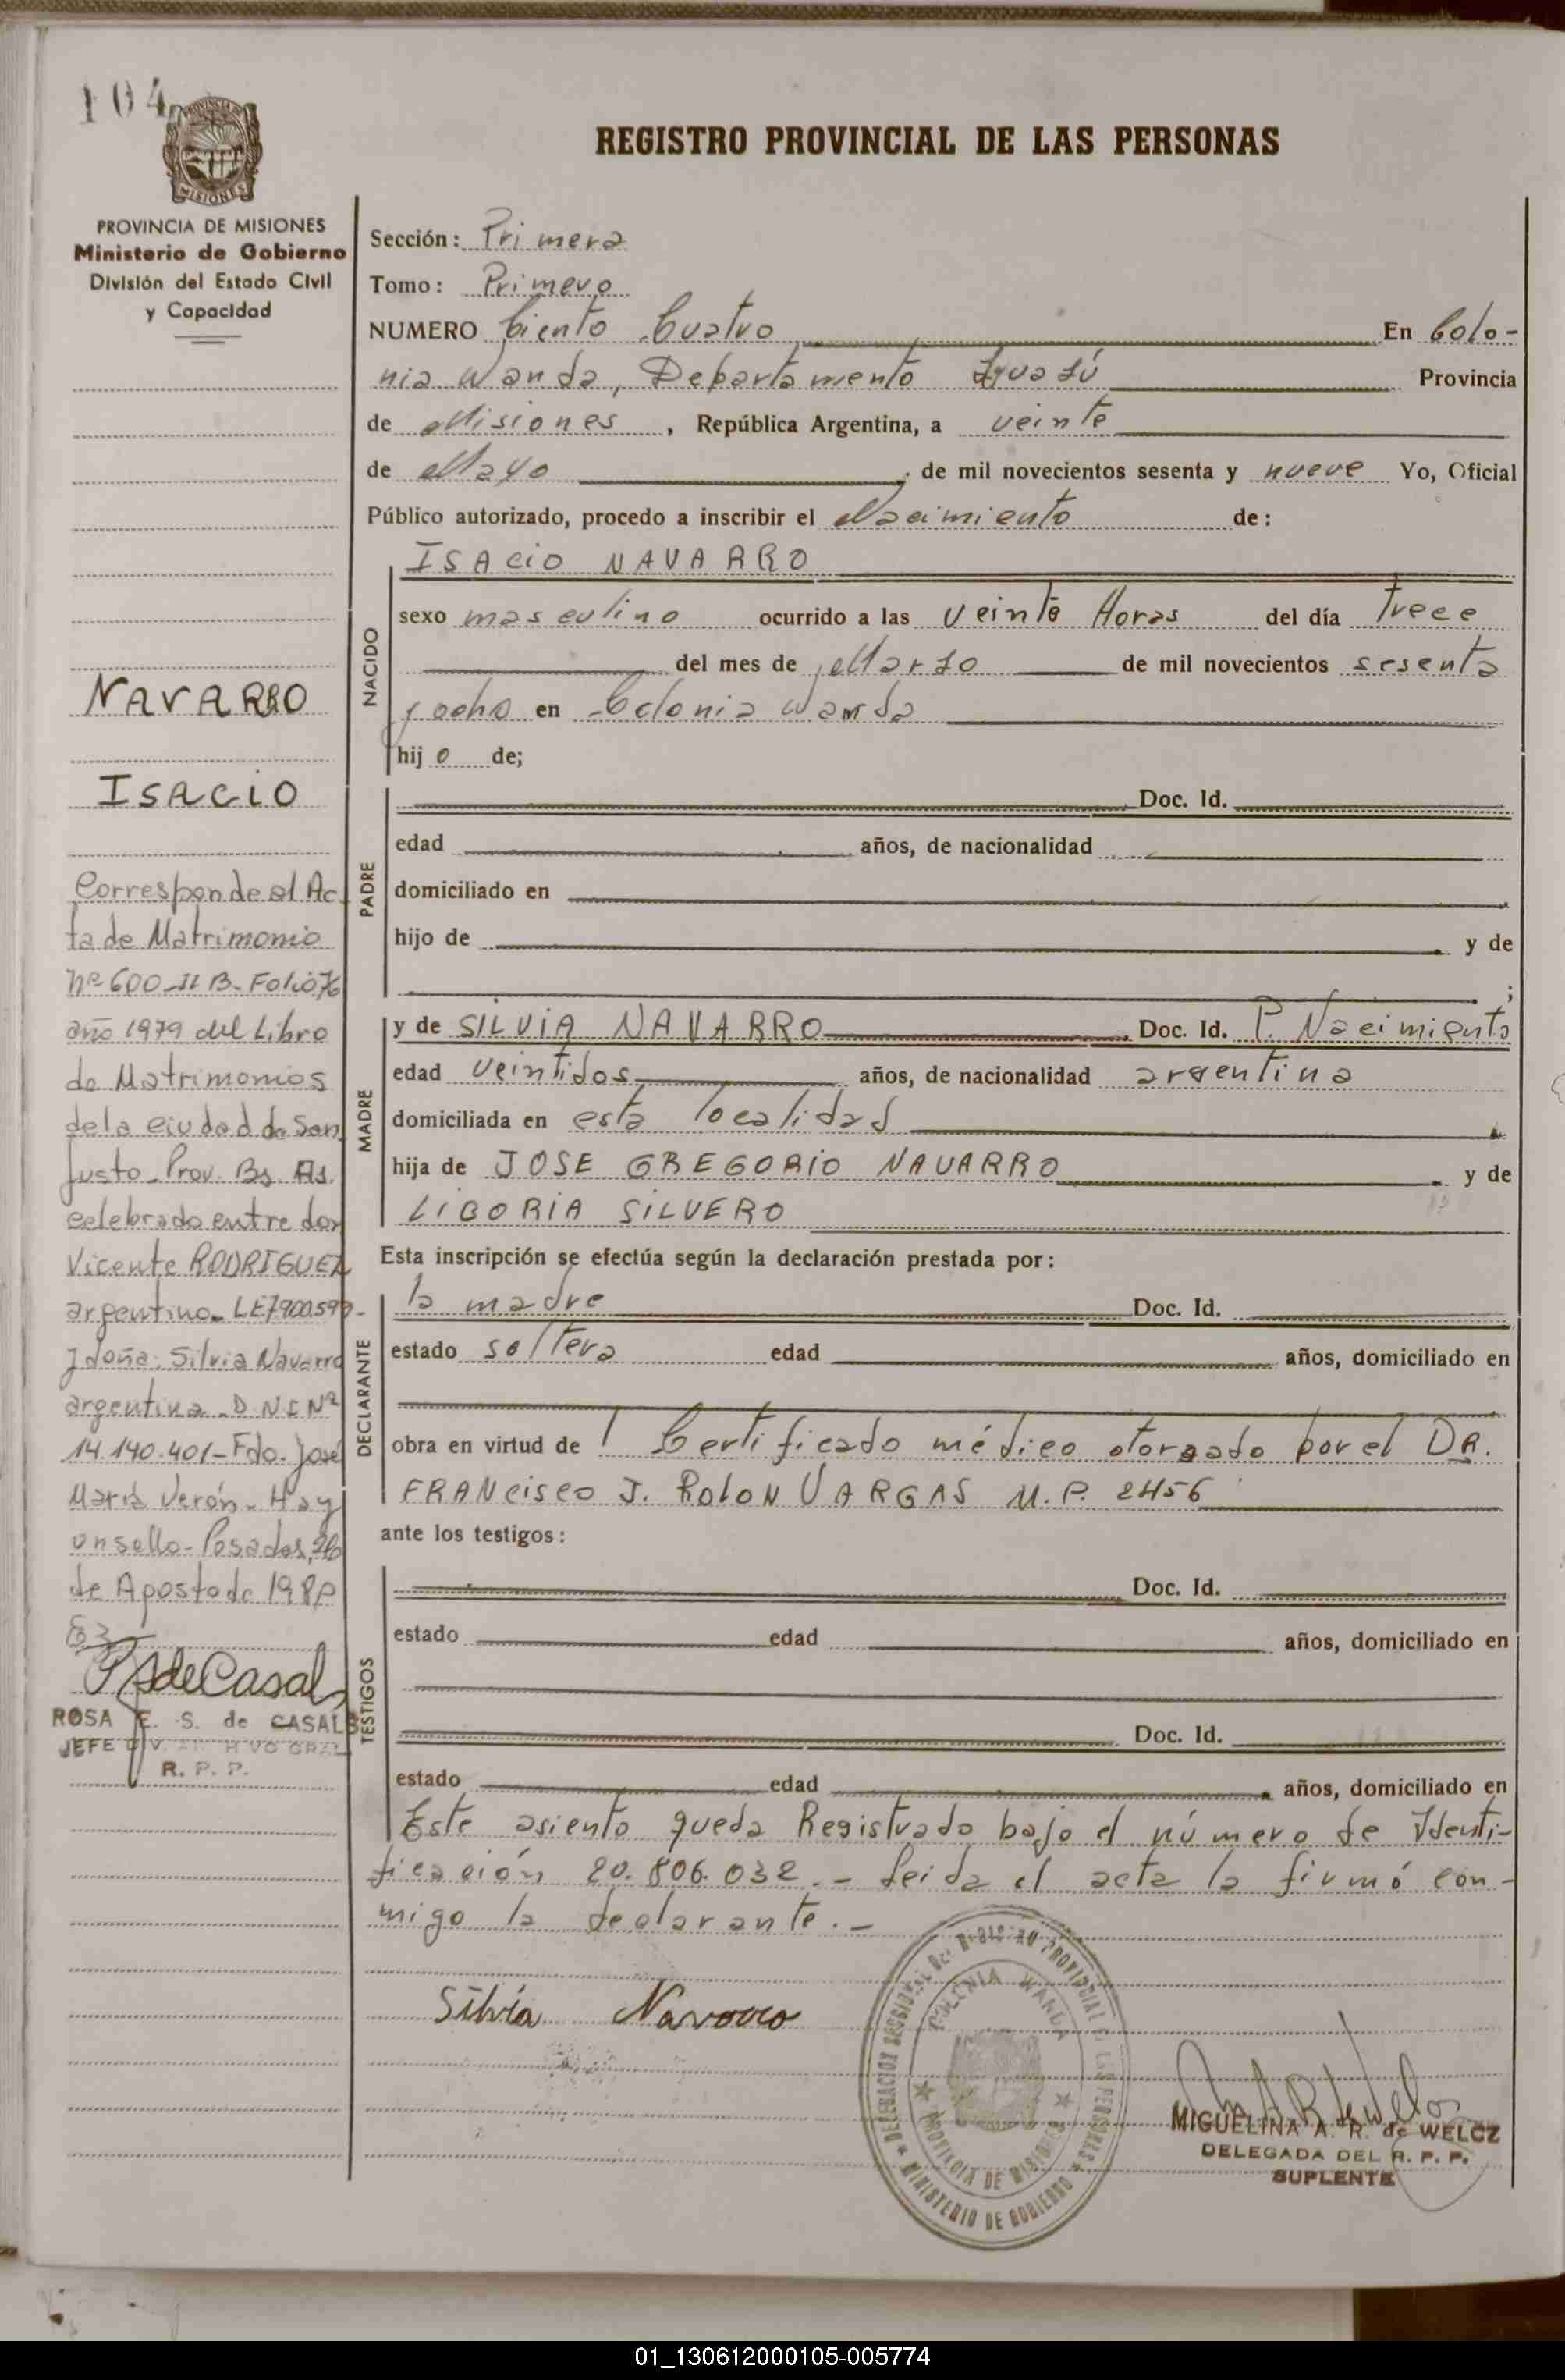 104
PROVINCIA DE MISIONES
Ministerio de Gobierno
División del Estado Civil
y Capacidad
NAVARRO
ISACIO
Corresponde al Ac
ta de Matrimonio
nº 600-II B-Folio 76
año 1979 del Libro
de Matrimonios
de la ciudad de San
Justo-Prov. Bs. As.
celebrado entre don
Vicente RODRIGUEZ
argentino-LE
y doña: Silvia Navarro
argentina-DNI Nº
14.140.401-Fdo. José
María Verón-Hay
un sello-Posadas, 26
de Agosto de 198
ROSA E. S. de CASALS
JEFE DIV. ARCHIVO GRAL
R. P. P.
REGISTRO PROVINCIAL DE LAS PERSONAS
Sección: Primera
Tomo: Primero
NUMERO Ciento Cuatro En Colo-
nia Wanda, Departamento Iguazú Provincia
de Misiones, República Argentina, a veinte
de Mayo de mil novecientos sesenta y nueve Yo, Oficial
Público autorizado, procedo a inscribir el Nacimiento de:
NACIDO
ISACIO NAVARRO
sexo masculino ocurrido a las veinte Horas del día trece
del mes de Marzo de mil novecientos sesenta
y ocho en Colonia Wanda
hij o de;
PADRE
Doc. Id.
edad años, de nacionalidad
domiciliado en
hijo de y de
;
MADRE
y de SILVIA NAVARRO Doc. Id. P. Nacimiento
edad veintidos años, de nacionalidad argentina
domiciliada en esta localidad
hija de JOSE GREGORIO NAVARRO y de
LIBORIA SILVERO
Esta inscripción se efectúa según la declaración prestada por:
DECLARANTE
la madre Doc. Id.
estado soltera edad años, domiciliado en
obra en virtud de / Certificado médico otorgado por el DR.
FRANCISCO J. ROLON VARGAS M.P. 2456
ante los testigos:
TESTIGOS
Doc. Id.
estado edad años, domiciliado en
Doc. Id.
estado edad años, domiciliado en
Este asiento queda Registrado bajo el número de Identi-
ficación 20.806.032.- Leida el acta la firmó con-
migo la declarante.-
Silvia Navarro
DELEGACION SECCIONAL DEL REGISTRO PROVINCIAL DE LAS PERSONAS
COLONIA WANDA
PROVINCIA DE MISIONES
MINISTERIO DE GOBIERNO
MIGUELINA A. R. de WELCZ
DELEGADA DEL R. P. P.
SUPLENTE
01_130612000105-005774